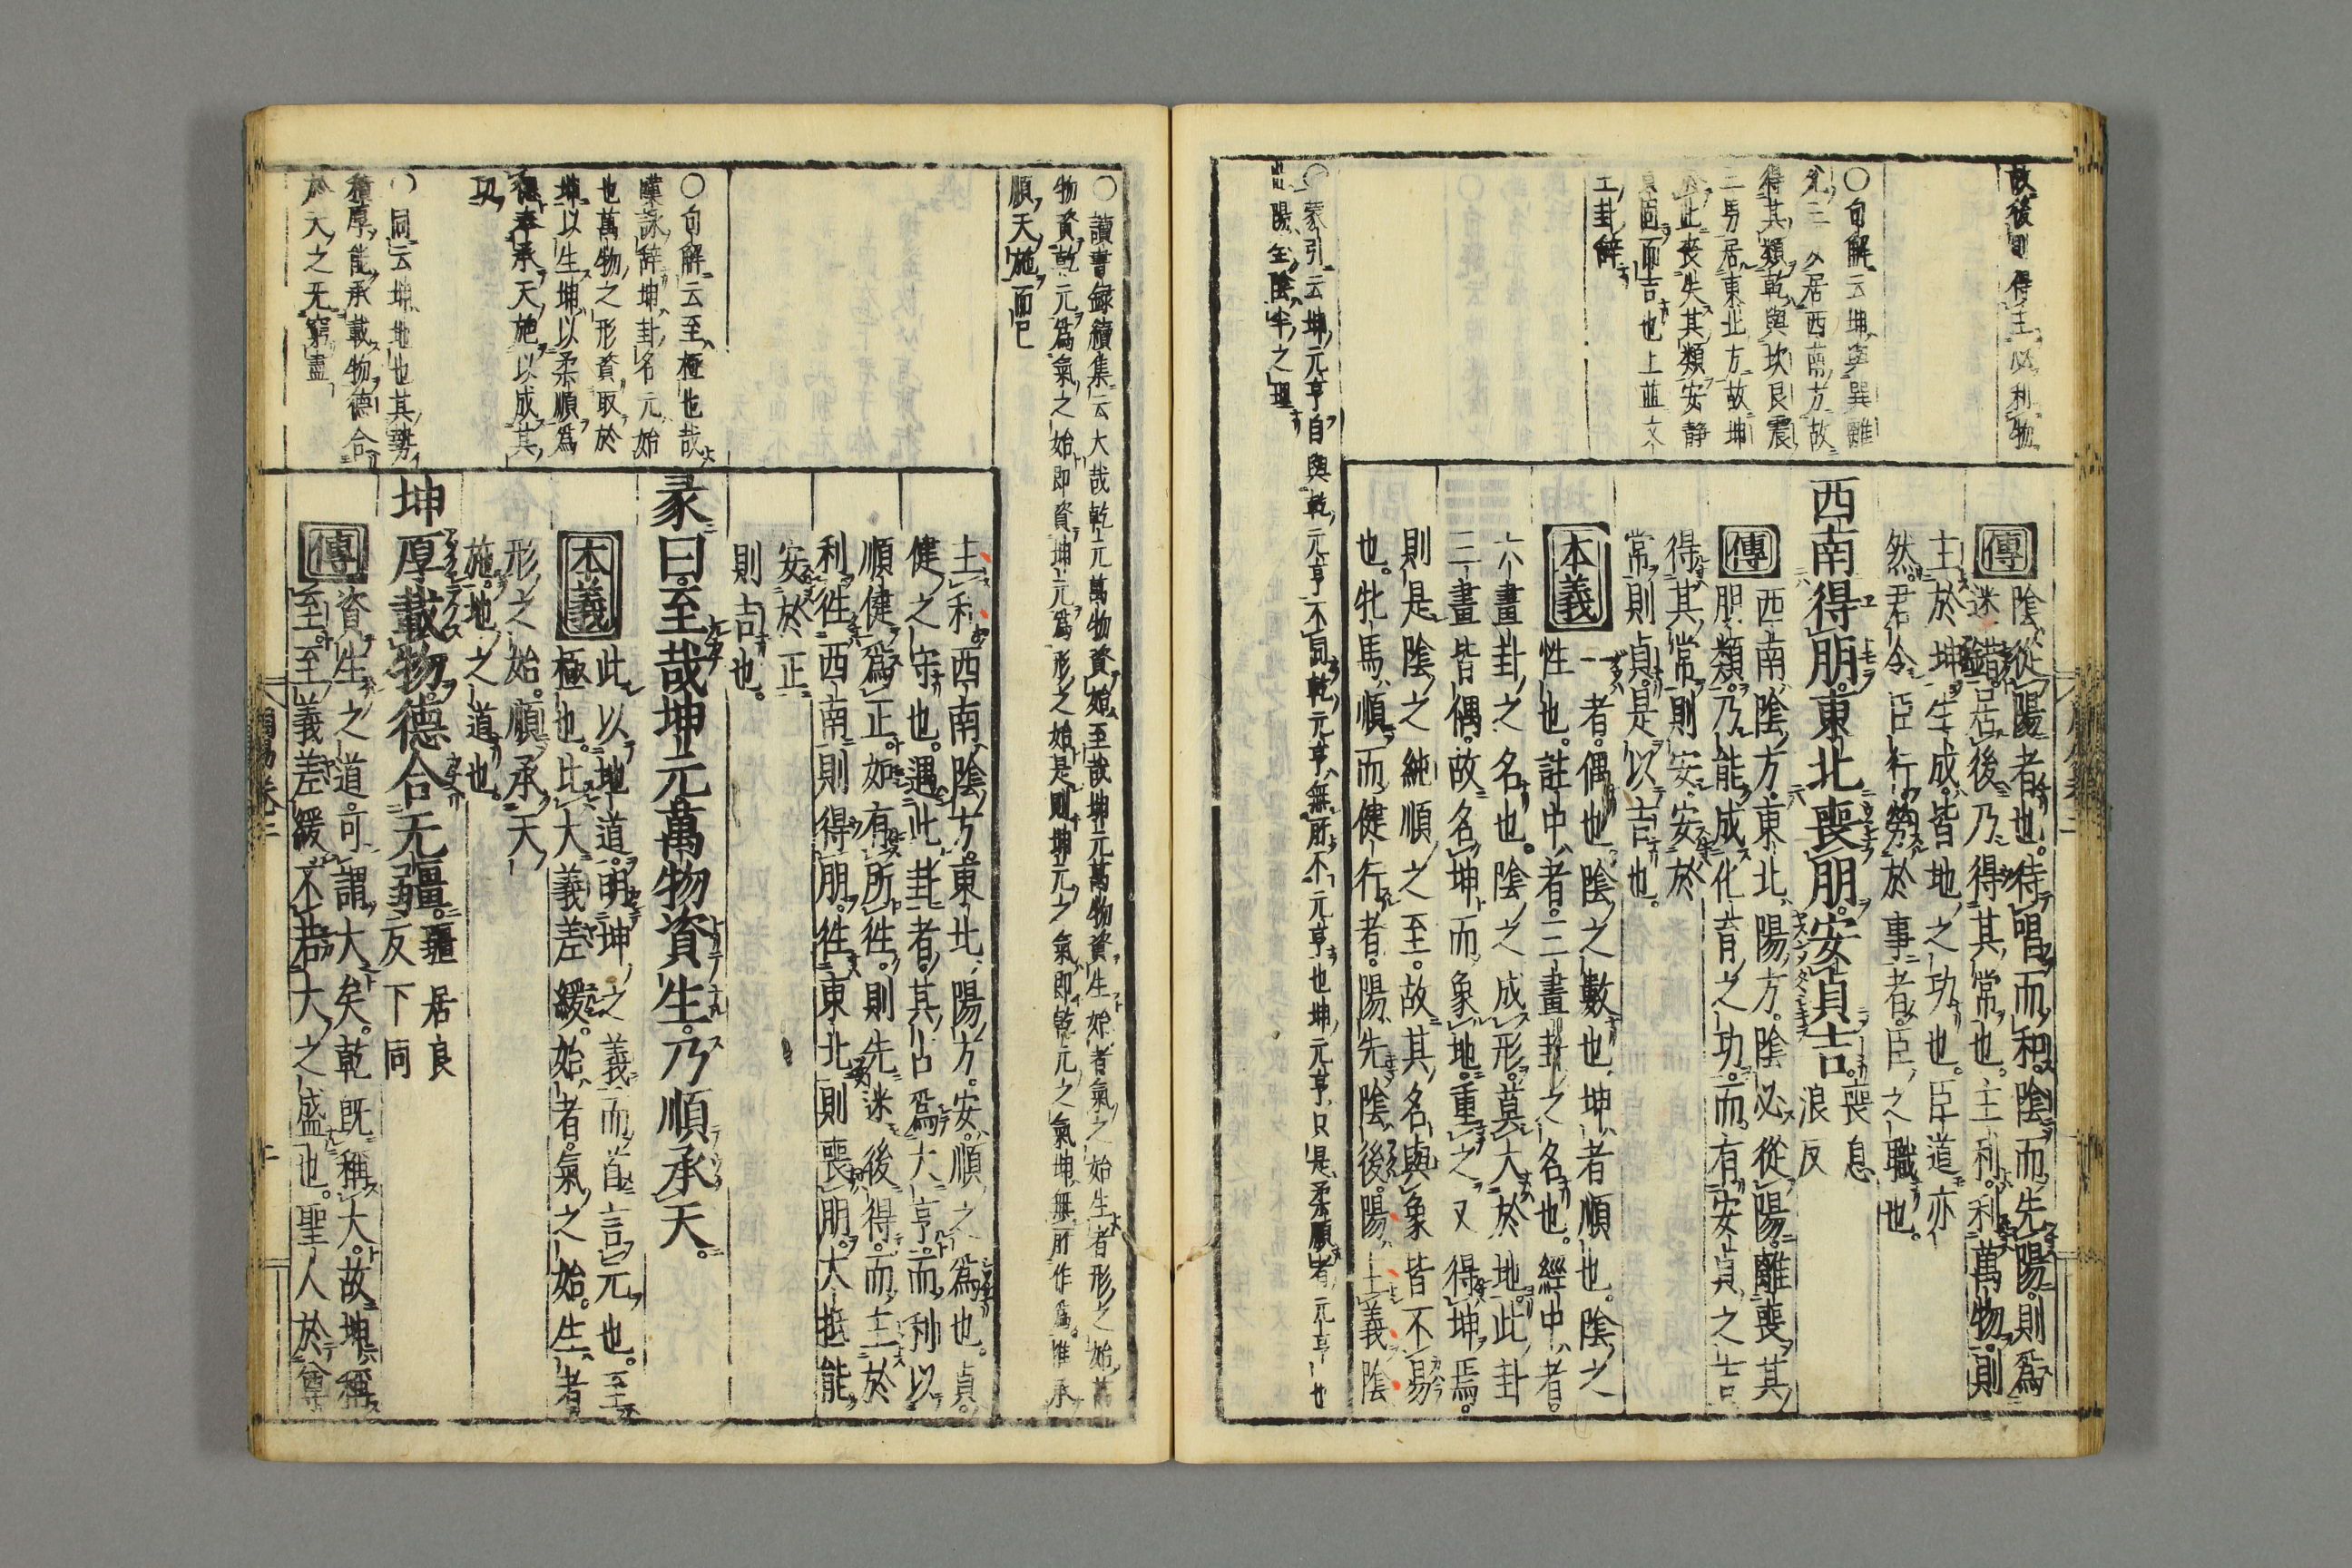 故後則得主必利物
〇句解云坤與巽離
兌三爻居西南方故
得其類乾與坎艮震
三男居東北方故坤
於此喪失其類安静
貞固而吉也上並文
王卦辞
傳陰從陽者也。待唱而和。陰而先陽。則爲
迷錯。居後乃得其常也。主利。利萬物。則
主於坤。生成。皆地之功也。臣道亦
然。君令臣行。勞於事者。臣之職也。
西南得朋。東北喪朋。安貞吉。喪息
浪反
傳西南陰方。東北陽方。陰必從陽。離喪其
朋類。乃能成化育之功。而有安貞之吉
得其常則安。安於
常則貞。是以吉也。
本義--者。偶也。陰之數也。坤者順也。陰之
性也。註中者。三畫卦之名也。經中者。
六畫卦之名也。陰之成形。莫大於地。此卦
三畫皆偶。故名坤而象地。重之又得坤焉。
則是陰之純順之至。故其名與象皆不易
也。牝馬。順而健行者。陽先陰後。陽主義陰
〇蒙引云坤元亨自與乾元亨不同乾元亨無所不元亨也坤元亨只是柔順者元亨也
此陽全陰半之理
周易卷二
〇讀書録續集云大哉乾元萬物資始至哉坤元萬物資生始者氣之始生者形之始萬
物資乾元爲氣之始即資坤元爲形之始是則坤元之氣即乾元之氣坤無所作爲惟承
順天施而已
主利。西南陰方。東北陽方。安。順之爲也。貞。
健之守也。遇此卦者。其占爲大亨。而利以
順健爲正。如有所往。則先迷後得。而主於
利。往西南則得朋。往東北則喪朋。大抵能
安於正
則吉也。
〇句解云至極也哉
嘆詠辞坤卦名元始
也萬物之形資取於
坤以生坤以柔順爲
德奉承天施以成其
功
彖曰。至哉坤元。萬物資生。乃順承天。
本義此以地道。明坤之義。而首言元也。至。
極也。比大義差緩。始者。氣之始。生者。
形之始。順承天
施。地之道也。
〇同云坤地也其勢
積厚能承載物德合
於天之无窮盡
坤厚載物。德合无疆。疆居良
反下同
傳資生之道。可謂大矣。乾既稱大。故坤稱
至。至義差緩。不若大之盛也。聖人於尊
周易卷二